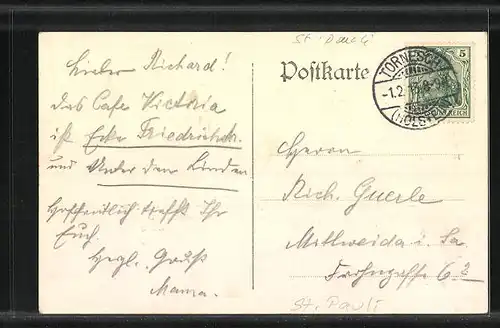 St. Pauli
Lieber Richard!
das Cafe Victoria
ist Ecke Friedrichstr.
und Unter den Linden
Hoffentlich trefft Ihr
Euch.
Hrzgl. Gruß
Mama.
Postkarte
TORNESCH
(HOLST.)
5
Herrn
Rich. Guerle
Mittweida i. Sa.
St. Pauli